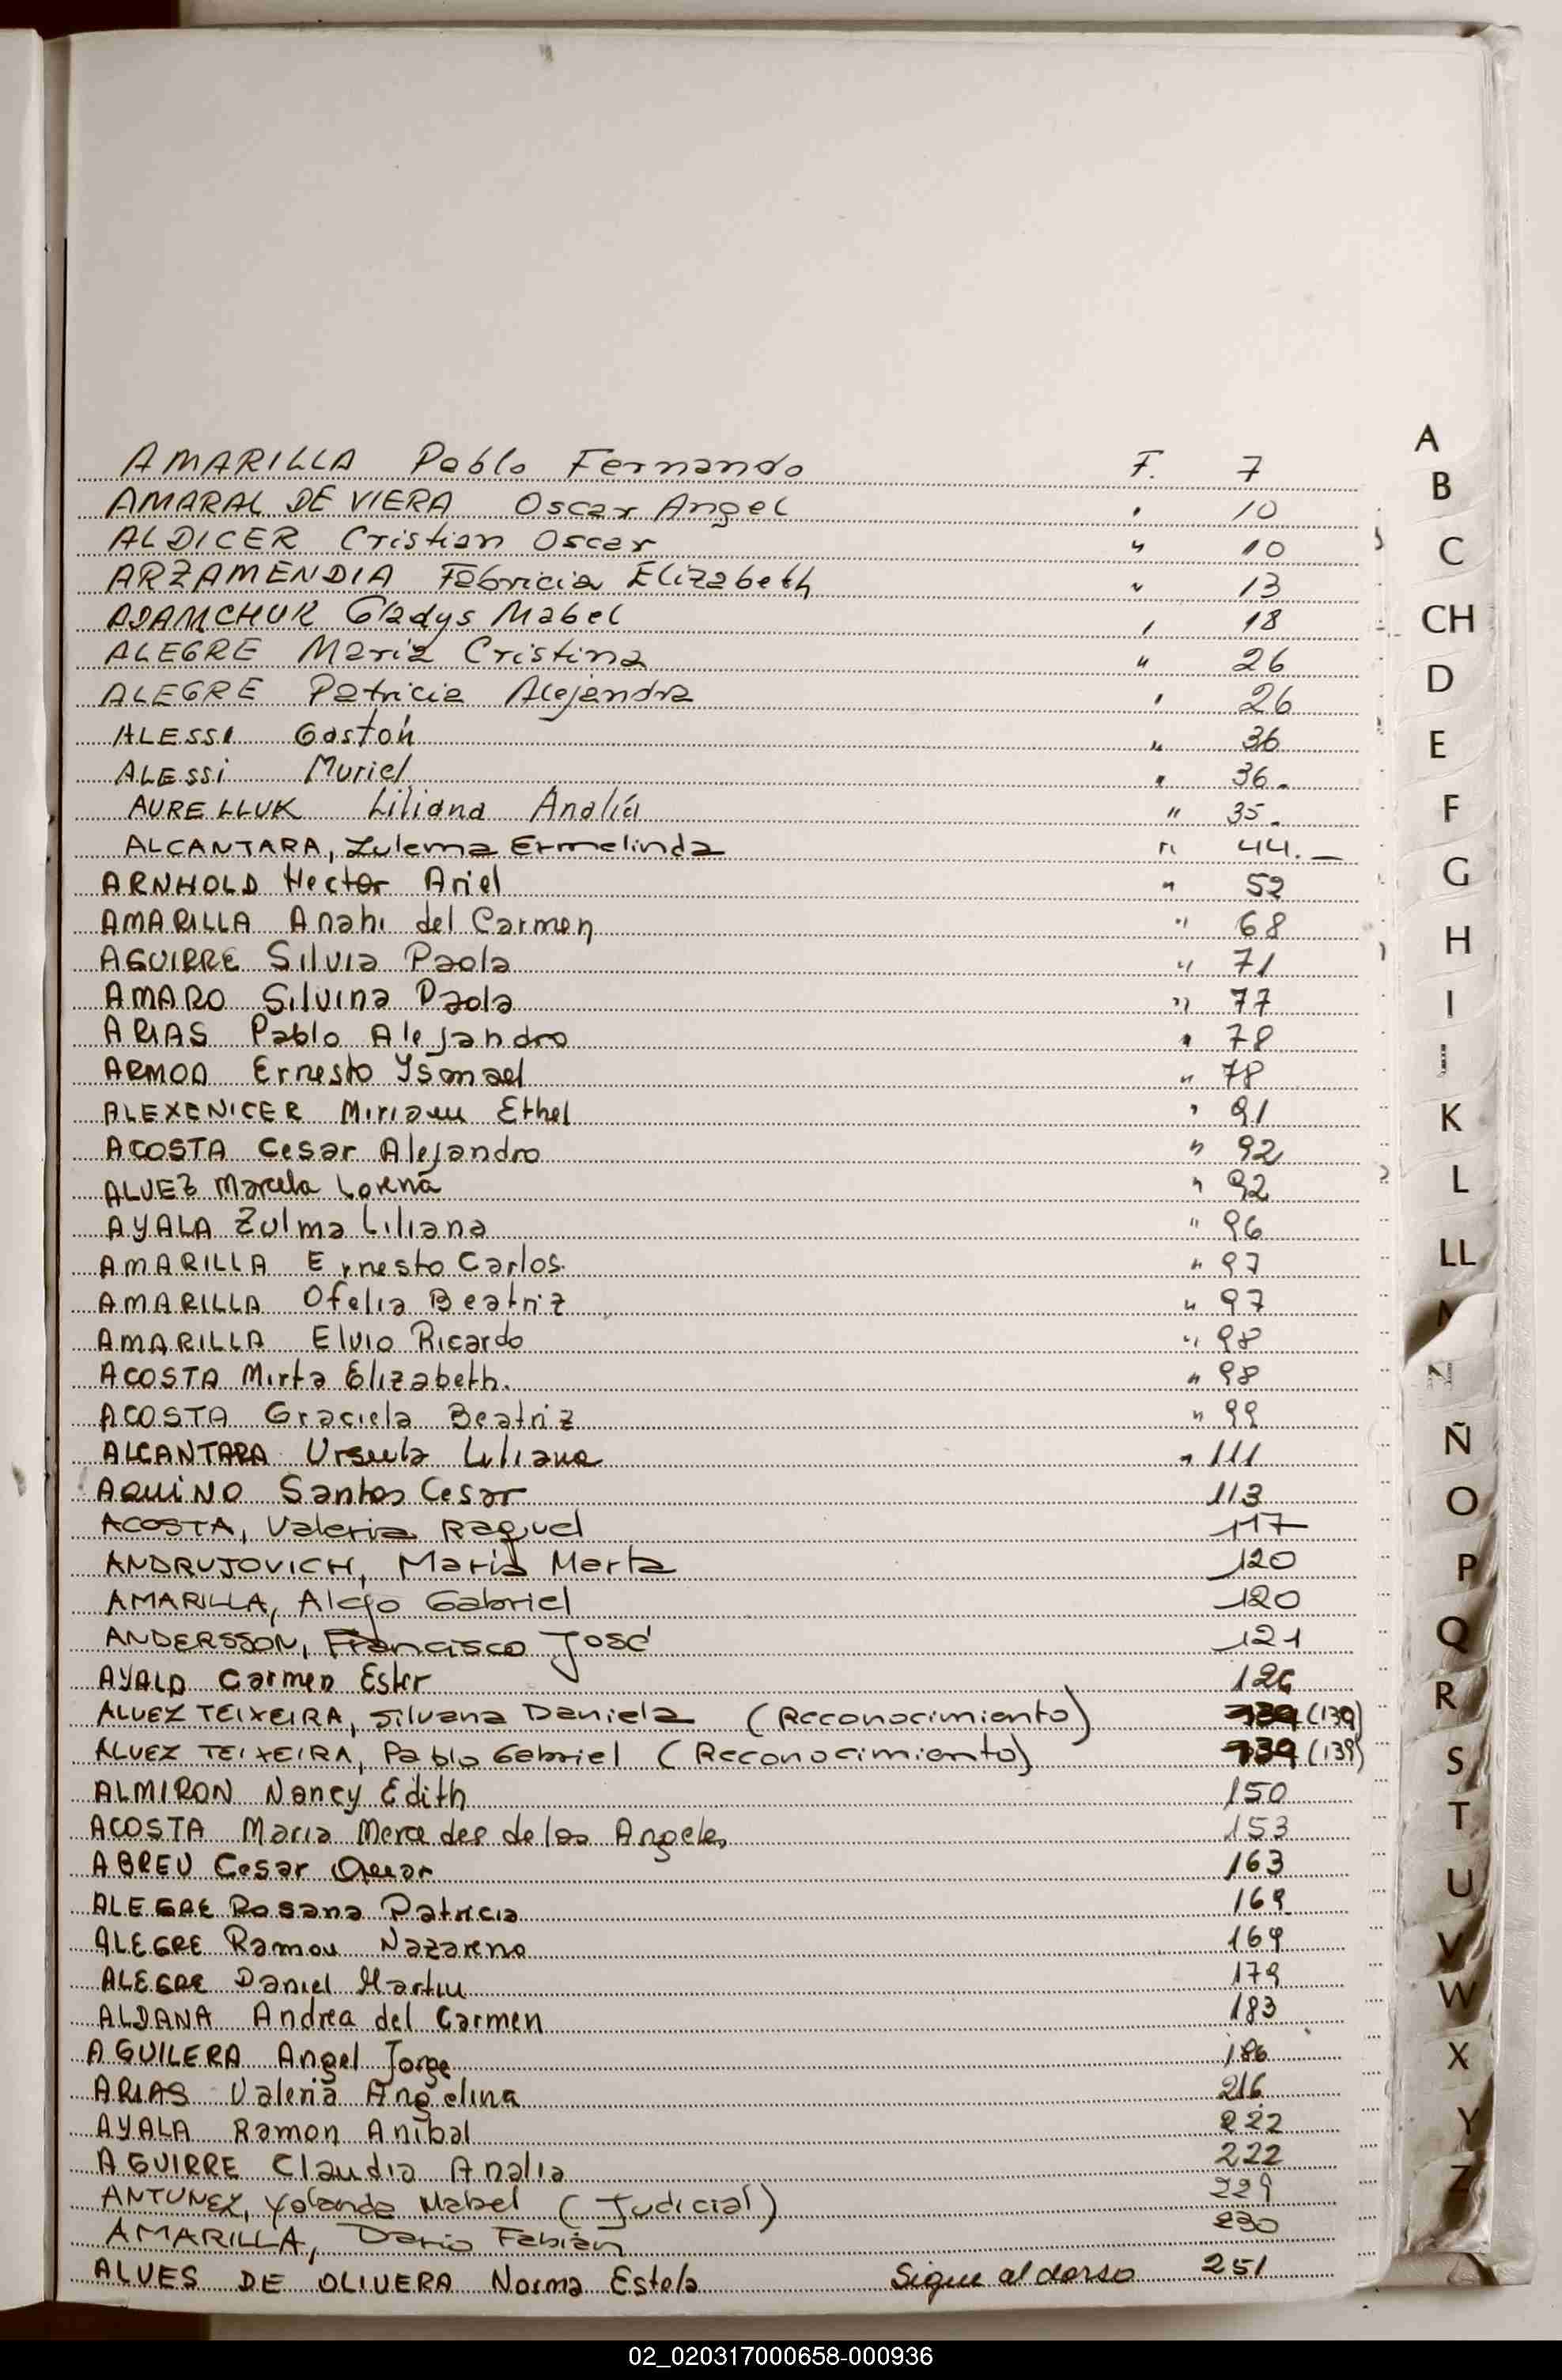 AMARILLA Pablo Fernando F. 7
AMARAL DE VIERA Oscar Angel " 10
ALDICER Cristian Oscar " 10
ARZAMENDIA Fabricia Elizabeth " 13
ADAMCHUK Gladys Mabel " 18
ALEGRE Maria Cristina " 26
ALEGRE Patricia Alejandra " 26
ALESSI Gastón " 36
ALESSI Muriel " 36.
AURELLUK Liliana Analía " 35.
ALCANTARA, Zulema Ermelinda " 44.—
ARNHOLD Hector Ariel " 52
AMARILLA Anahi del Carmen " 68
AGUIRRE Silvia Paola " 71
AMARO Silvina Paola " 77
ARIAS Pablo Alejandro " 78
ARMOA Ernesto Ysmael " 78
ALEXENICER Miriam Ethel " 91
ACOSTA Cesar Alejandro " 92
ALVEZ Marcela Lorena " 92
AYALA Zulma Liliana " 96
AMARILLA Ernesto Carlos. " 97
AMARILLA Ofelia Beatriz " 97
AMARILLA Elvio Ricardo " 98
ACOSTA Mirta Elizabeth. " 98
ACOSTA Graciela Beatriz " 99
ALCANTARA Ursula Liliana " 111
AQUINO Santos Cesar 113
ACOSTA, Valeria Raquel 117
ANDRUJOVICH, Maria Marta 120
AMARILLA, Alejo Gabriel 120
ANDERSSON, Francisco José 121
AYALA Carmen Ester 126
ALVEZ TEIXEIRA, Silvana Daniela (Reconocimiento) 139 (139)
ALVEZ TEIXEIRA, Pablo Gabriel (Reconocimiento) 139 (139)
ALMIRON Nancy Edith 150
ACOSTA Maria Mercedes de los Angeles 153
ABREU Cesar Omar 163
ALEGRE Rosana Patricia 169
ALEGRE Ramon Nazareno 169
ALEGRE Daniel Martin 179
ALDANA Andrea del Carmen 183
AGUILERA Angel Jorge 186
ARIAS Valeria Angelina 216
AYALA Ramon Anibal 222
AGUIRRE Claudia Analia 222
ANTUNEZ, Yolanda Mabel (Judicial) 229
AMARILLA, Dario Fabián 230
ALVES DE OLIVERA Norma Estela Sigue al dorso 251
A
B
C
CH
D
E
F
G
H
I
K
L
LL
N
Ñ
O
P
Q
R
S
T
U
V
W
X
Y
Z
02_020317000658-000936